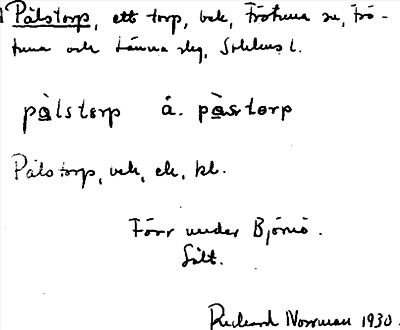 Pålstorp, ett torp, bek, Frötuna sn, Frö-
tuna och Länna skg, Sthlms l.
pålstorp å. påstorp
Pålstorp, bek, ek, kl.
Förr under Björnö.
Sålt.
Richard Norrman 1930.